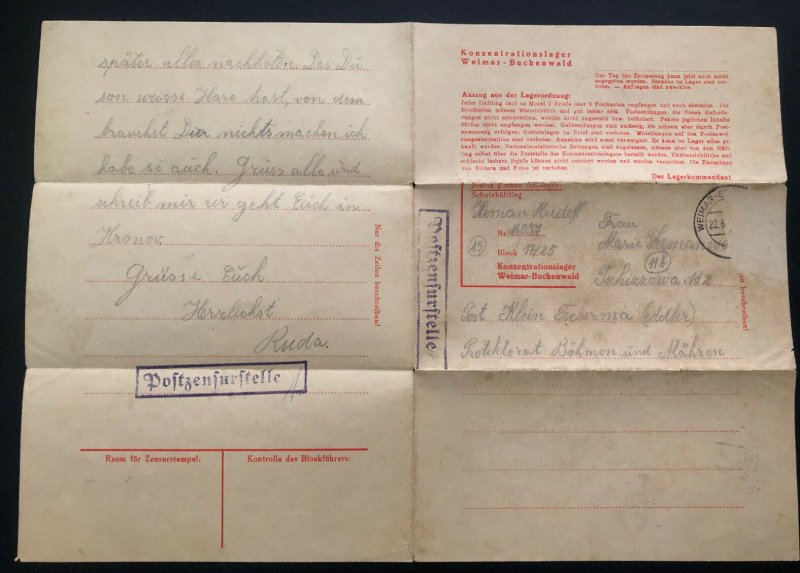 später alles nachholen. Das Du
son weisse Hare hast, von dem
brauchst Dier nichts machen ich
habe si auch. Gruss alle und
schreib mir wi geht Euch in
Hronov
Grüsse Euch
Herzlichst
Ruda.
Nur die Zeilen beschreiben!
Postzensurstelle
Raum für Zensurstempel:
Kontrolle des Blockführers:
Konzentrationslager
Weimar-Buchenwald
Der Tag der Entlassung kann jetzt noch nicht
angegeben werden. Besuche im Lager sind ver-
boten. — Anfragen sind zwecklos.
Auszug aus der Lagerordnung:
Jeder Häftling darf im Monat 2 Briefe oder 2 Postkarten empfangen und auch absenden. Die
Briefzeilen müssen übersichtlich und gut lesbar sein. Postsendungen, die diesen Anforde-
rungen nicht entsprechen, werden nicht zugestellt bzw. befördert. Pakete jeglichen Inhalts
dürfen nicht empfangen werden. Geldsendungen sind zulässig, sie müssen aber durch Post-
anweisung erfolgen; Geldeinlagen im Brief sind verboten. Mitteilungen auf den Postanwei-
sungsabschnitten sind verboten. Annahme wird sonst verweigert. Es kann im Lager alles ge-
kauft werden. Nationalsozialistische Zeitungen sind zugelassen, müssen aber von dem Häft-
ling selbst über die Poststelle des Konzentrationslagers bestellt werden. Unübersichtliche und
schlecht lesbare Briefe können nicht zensiert werden und werden vernichtet. Die Zusendung
von Bildern und Fotos ist verboten.
Der Lagerkommandant
Meine genaue Anschrift:
Schutzhäftling
Zeman Rudolf
Nr. 16037
Block 17425
Konzentrationslager
Weimar-Buchenwald
Postzensurstelle
WEIMAR
22.6
Frau
Marie
Post Klein
Protektorat Böhmen und Mähren
beschreiben!